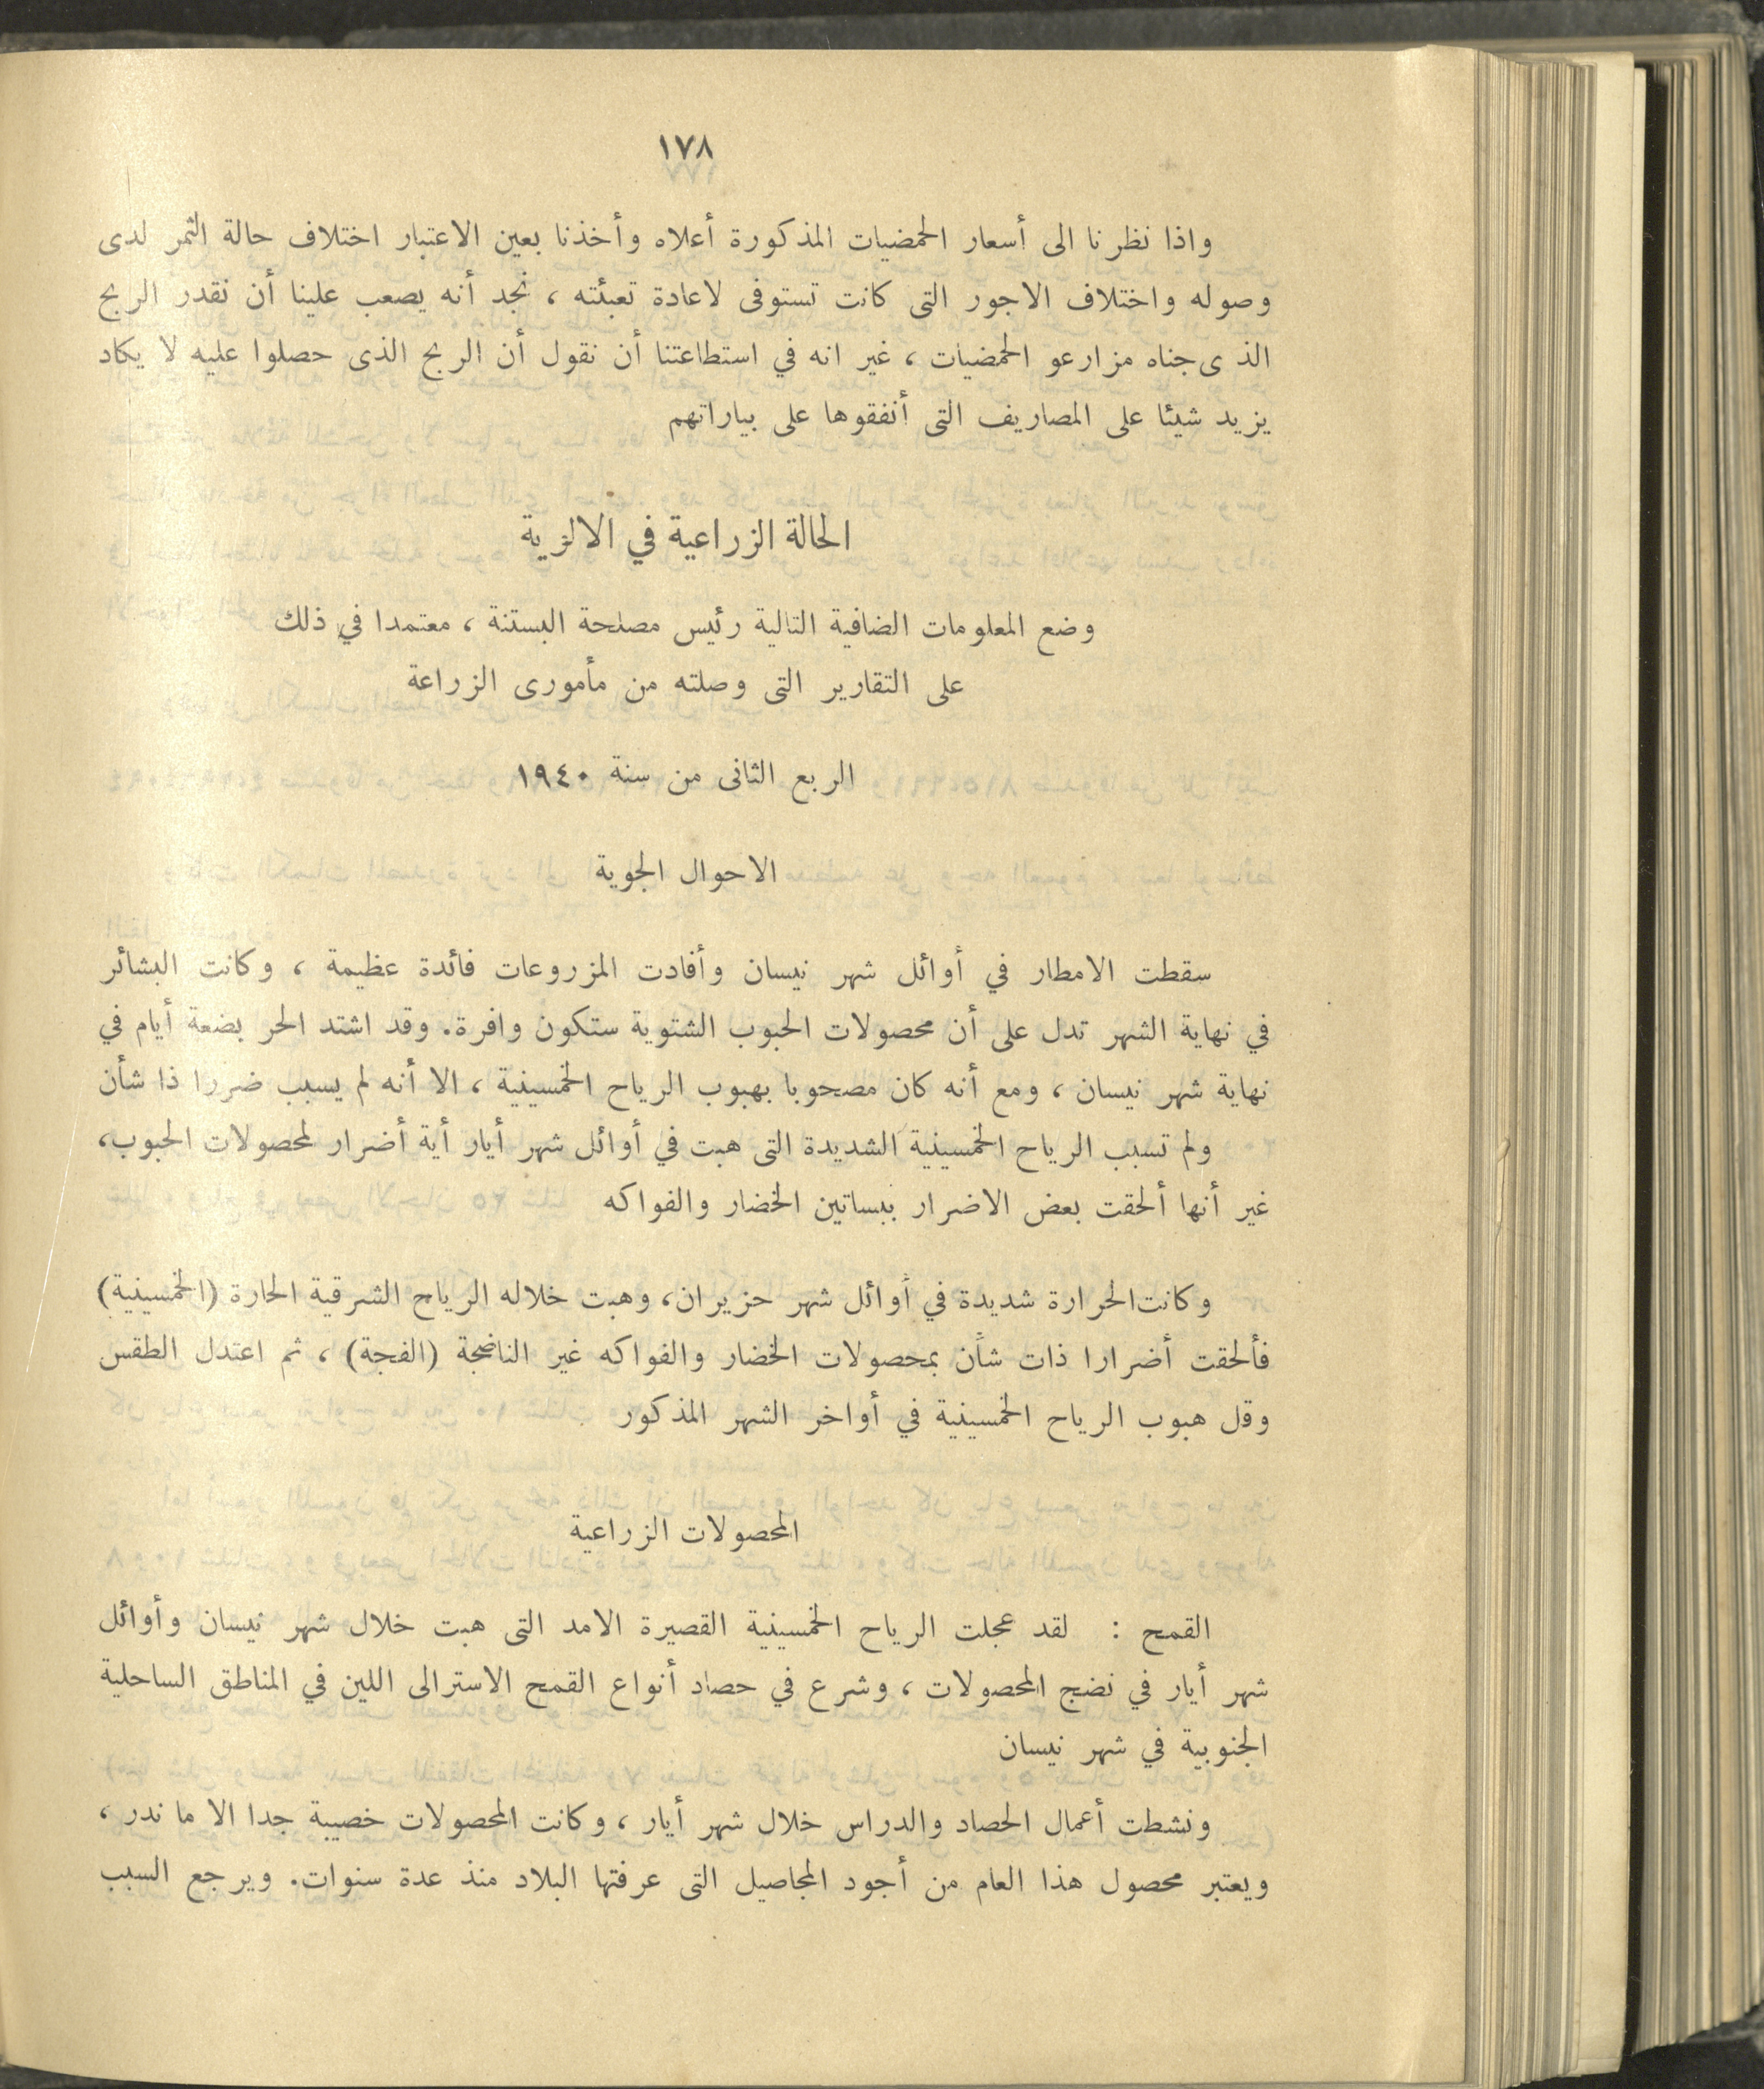 ١٧٨
واذا نظرنا الى أسعار الحمضيات المذكورة أعلاه وأخذنا بعين الاعتبار اختلاف حالة الثمر لدى
وصوله واختلاف الاجور التى كانت تستوفى لاعادة تعبئته ، نجد أنه يصعب علينا أن نقدر الربح
الذ ى جناه مزارعو الحمضيات ، غير انه في استطاعتنا أن نقول أن الربح الذى حصلوا عليه لا يكاد
يزيد شيئا على المصاريف التى أنفقوها على بياراتهم
الحالة الزراعية في الالوية
وضع المعلومات الضافية التالية رئيس مصلحة البستنة ، معتمدا في ذلك
على التقارير التى وصلته من مأمورى الزراعة
الربع الثانى من سنة ١٩٤٠
الاحوال الجوية
سقطت الامطار في أوائل شهر نيسان وأفادت المزروعات فائدة عظيمة ، وكانت البشائر
في نهاية الشهر تدل على أن محصولات الحبوب الشتوية ستكون وافرة. وقد اشتد الحر بضعة أيام في
نهاية شهر نيسان ، ومع أنه كان مصحوبا بهبوب الرياح الخمسينية ، الا أنه لم يسبب ضررا ذا شأن
ولم تسبب الرياح الخمسينية الشديدة التى هبت في أوائل شهر أيار أية أضرار لمحصولات الحبوب،
غير أنها ألحقت بعض الاضرار ببساتين الخضار والفواكه
وكانت الحرارة شديدة في أوائل شهر حزيران، وهبت خلاله الرياح الشرقية الحارة (الخمسينية)
فألحقت أضرارا ذات شأن بمحصولات الخضار والفواكه غير الناضجة (الفجة) ، ثم اعتدل الطقس
وقل هبوب الرياح الخمسينية في أواخر الشهر المذكور
المحصولات الزراعية
القمح : لقد عجلت الرياح الخمسينية القصيرة الامد التى هبت خلال شهر نيسان وأوائل
شهر أيار في نضج المحصولات ، وشرع في حصاد أنواع القمح الاسترالى اللين في المناطق الساحلية
الجنوبية في شهر نيسان
ونشطت أعمال الحصاد والدراس خلال شهر أيار ، وكانت المحصولات خصيبة جدا الا ما ندر ،
ويعتبر محصول هذا العام من أجود المحاصيل التى عرفتها البلاد منذ عدة سنوات. ويرجع السبب